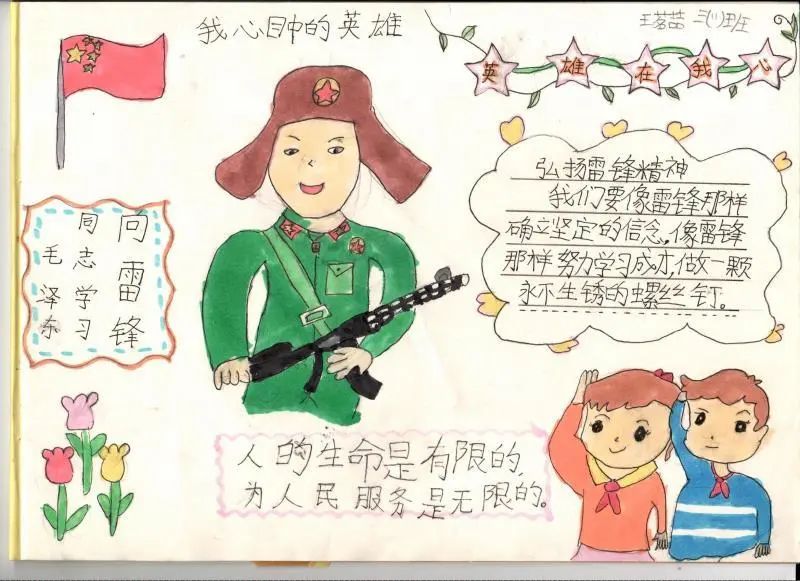 我心目中的英雄
三(1)班
英雄在我心
弘扬雷锋精神
我们要像雷锋那样
确立坚定的信念,像雷锋
那样努力学习成才,做一颗
永不生锈的螺丝钉。
向雷锋
同志学习
毛泽东
人的生命是有限的,
为人民服务是无限的。